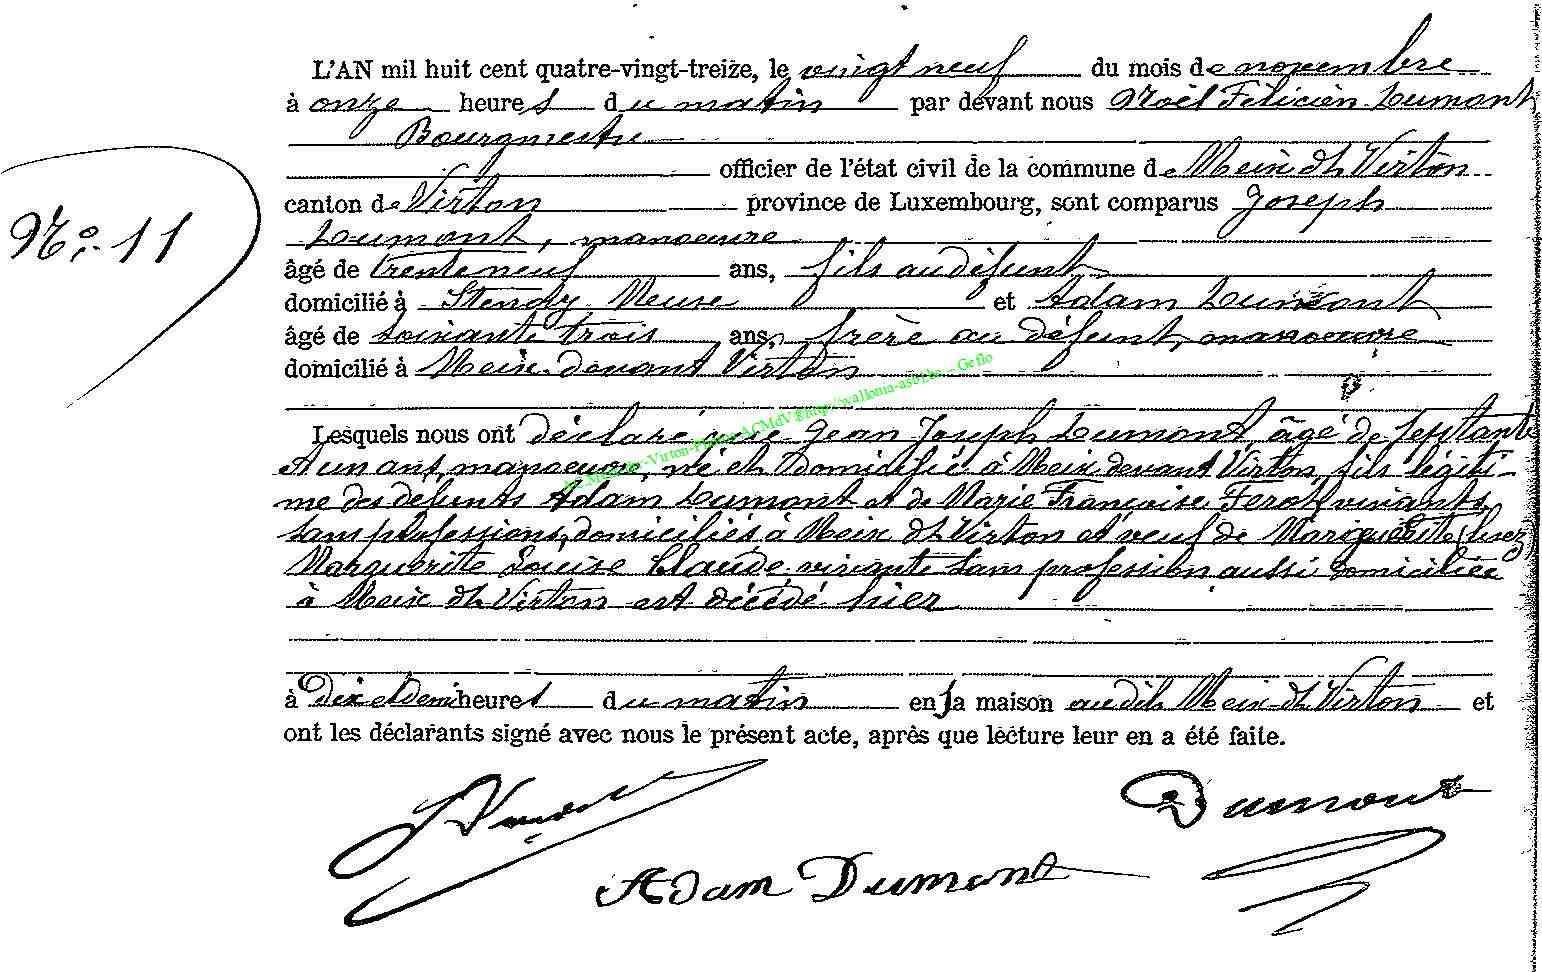 L'AN mil huit cent quatre-vingt-treize, le vingt neuf du mois de novembre
à onze heures du matin par devant nous Noël Félicien Dumont
Bourgmestre
officier de l'état civil de la commune de Meix dt Virton
N° 11
canton de Virton province de Luxembourg, sont comparus Joseph
Dumont, manoeuvre
âgé de trente neuf ans, fils au défunt
domicilié à Stenay Meuse et Adam Dumont
âgé de soixante trois ans, frère au défunt, manoeuvre
domicilié à Meix devant Virton
Lesquels nous ont déclaré que Jean Joseph Dumont âgé de septante
et un ans, manoeuvre, né et domicilié à Meix devant Virton, fils légiti-
me des défunts Adam Dumont et de Marie Françoise Ferot, vivants
sans professions, domiciliés à Meix dt Virton et veuf de Marguerite
Marguerite Louise Claude, vivante sans profession aussi domiciliée
à Meix dt Virton est décédé hier
à dix et demi heures du matin en sa maison au dit Meix dt Virton et
ont les déclarants signé avec nous le présent acte, après que lecture leur en a été faite.
Dumont
Adam Dumont